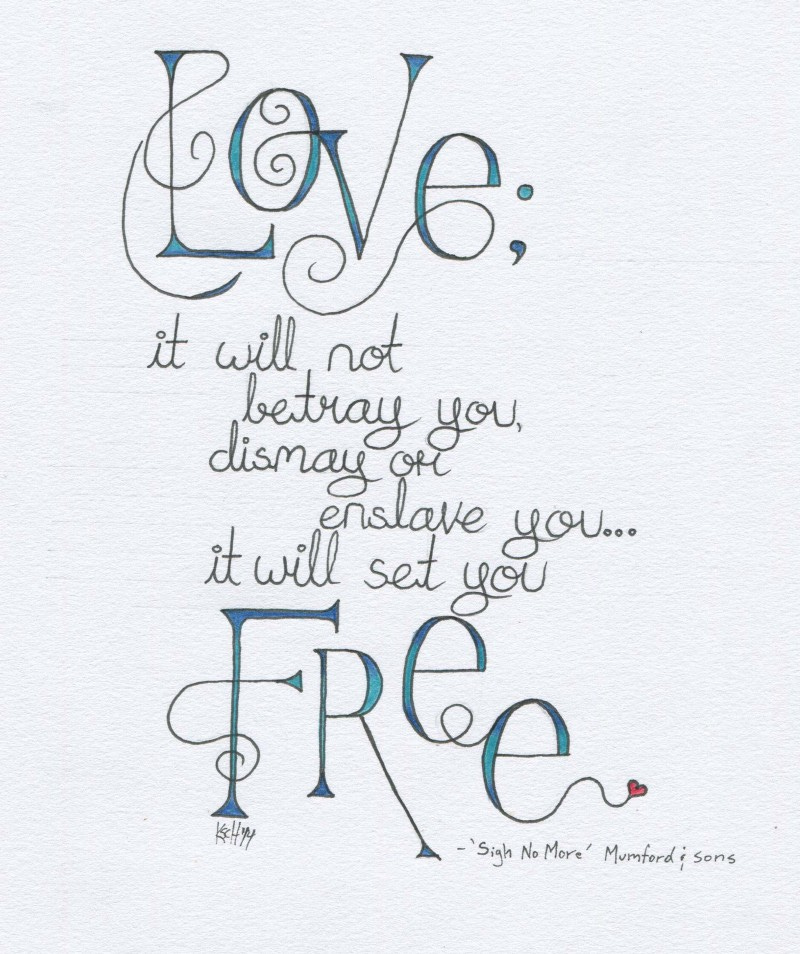 Love;
it will not
betray you,
dismay or
enslave you...
it will set you
FRee
-'Sigh No More' Mumford & sons